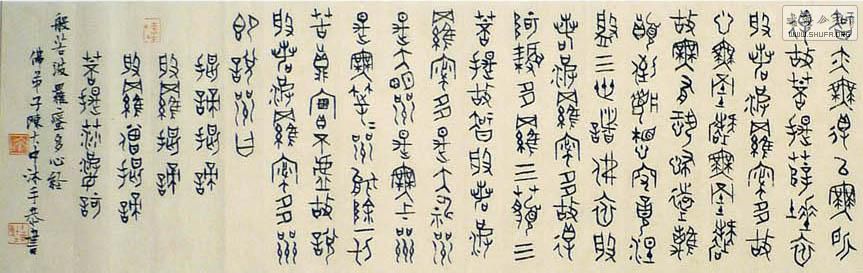 智亦無得以無所
得故菩提薩埵依
般若波羅蜜多故
心無罣礙無罣礙
故無有恐怖遠離
顛倒夢想究竟涅
槃三世諸佛依般
若波羅蜜多故得
阿耨多羅三藐三
菩提故智般若波
羅蜜多是大神咒
是大明咒是無上咒
是無等等咒能除一切
苦真實不虛故說
般若波羅蜜多咒
即說咒曰
揭諦揭諦
般羅揭諦
般羅僧揭諦
菩提莎婆訶
般若波羅蜜多心經
佛弟子陳大中沐手恭書